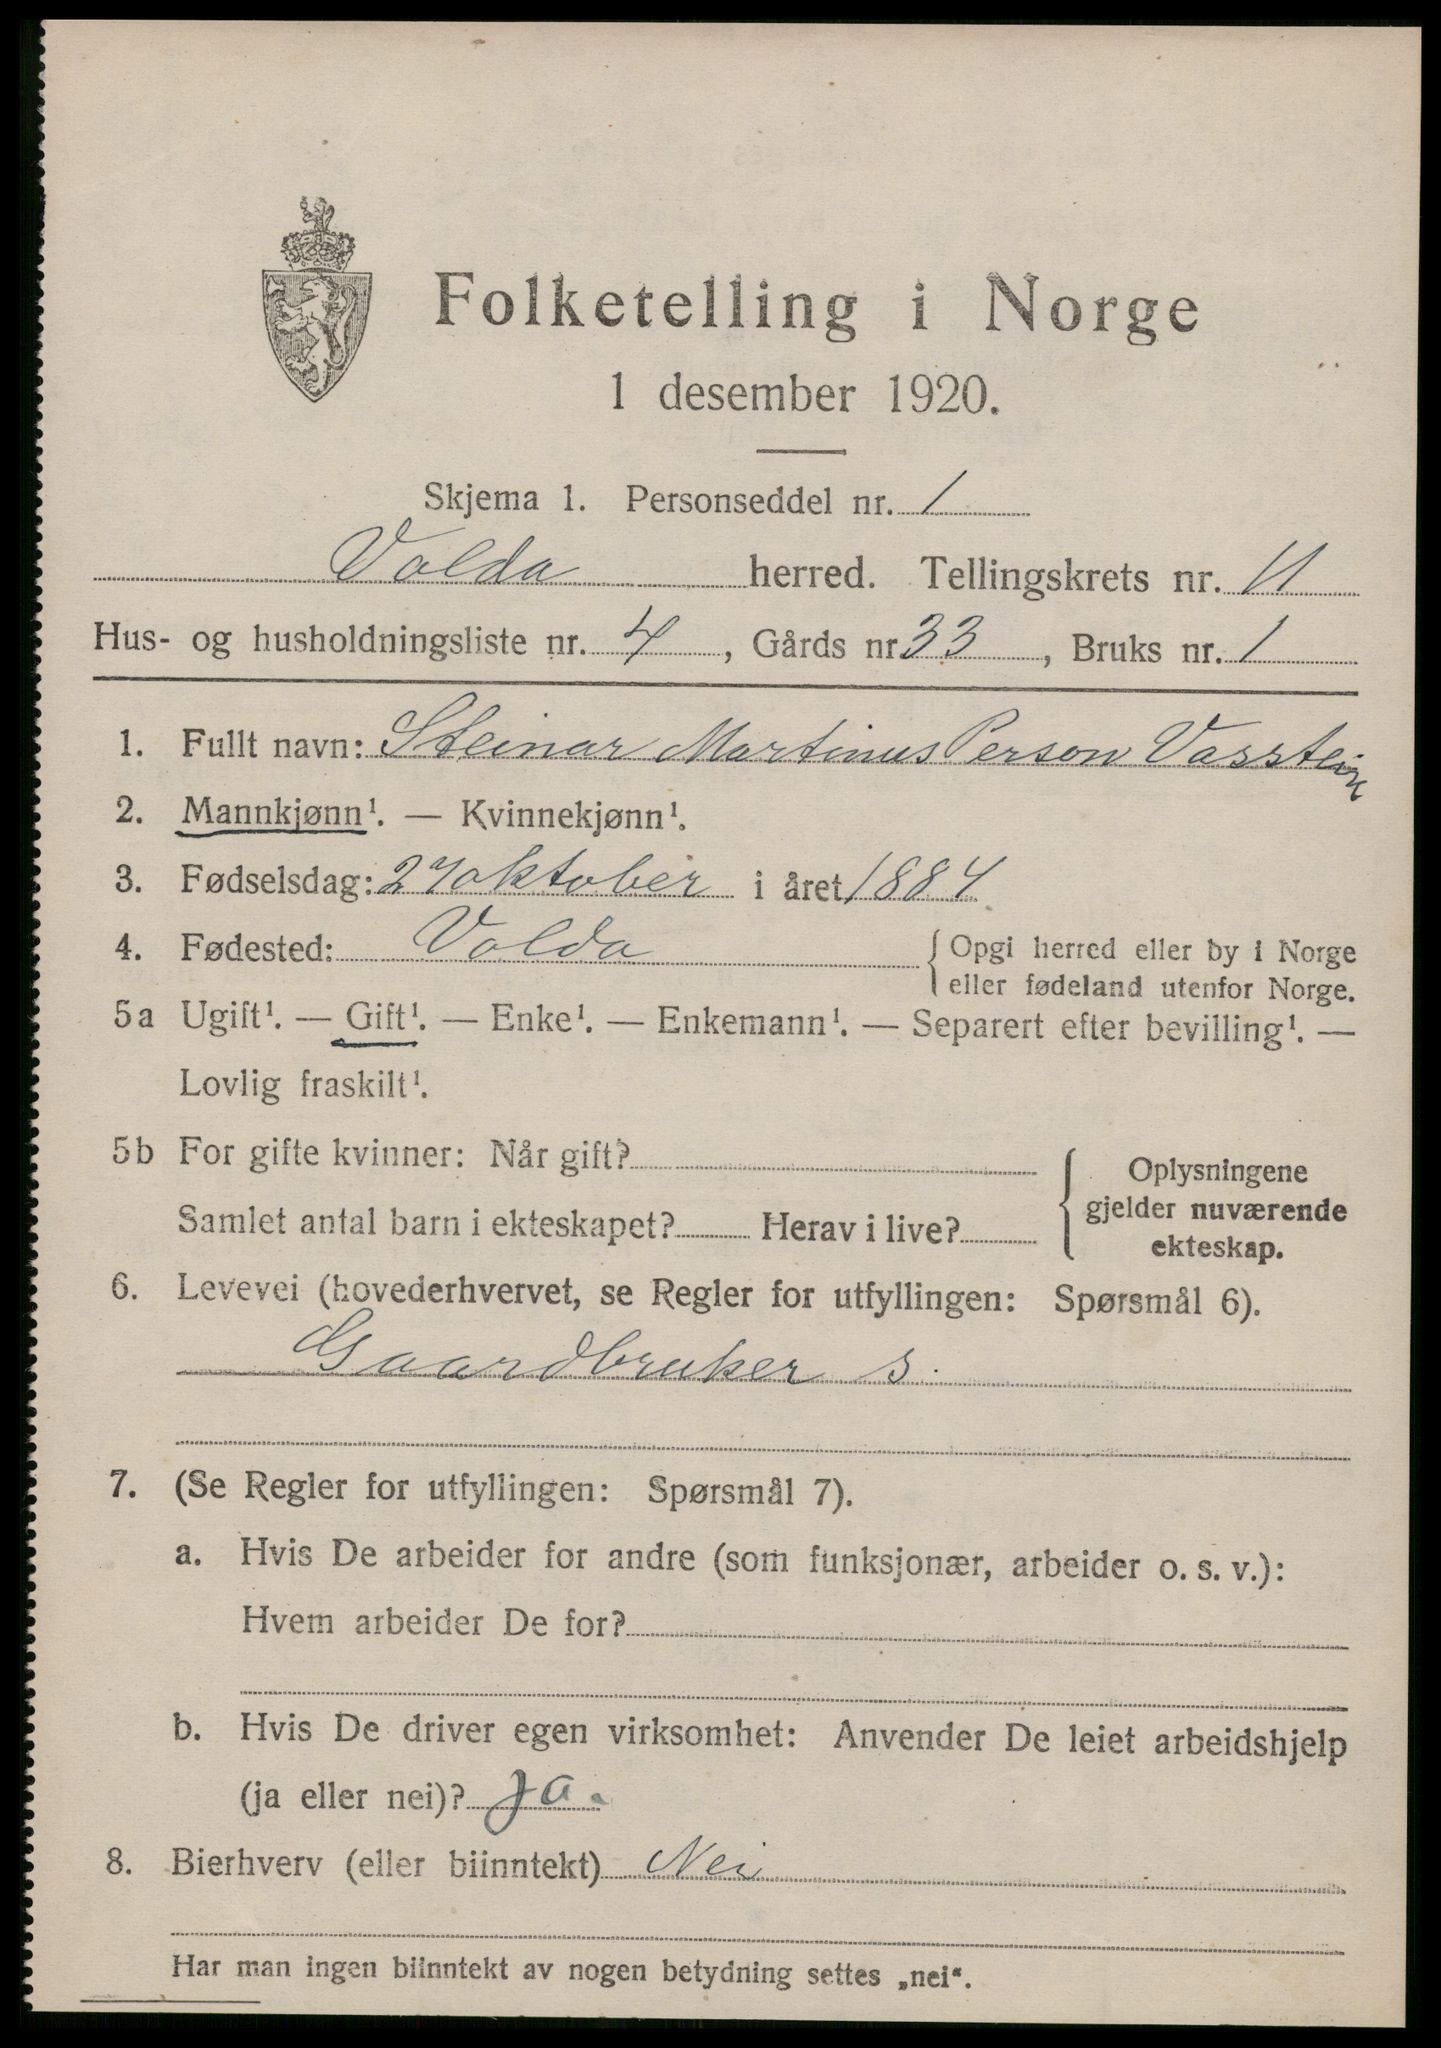 Folketelling i Norge
1 desember 1920.
Skjema 1. Personseddel nr. 1
Volda herred. Tellingskrets nr. 11
Hus- og husholdningsliste nr. 4, Gårds nr. 33, Bruks nr. 1
1. Fullt navn: Steinar Martinus Person Vasstein
2. Mannkjønn¹. — Kvinnekjønn¹.
3. Fødselsdag: 27 oktober i året 1884
4. Fødested: Volda { Opgi herred eller by i Norge
eller fødeland utenfor Norge.
5a Ugift¹. — Gift¹. — Enke¹. — Enkemann¹. — Separert efter bevilling¹. —
Lovlig fraskilt¹.
5b For gifte kvinner: Når gift? { Oplysningene
gjelder nuværende
Samlet antal barn i ekteskapet? Herav i live?
ekteskap.
6. Levevei (hovederhvervet, se Regler for utfyllingen: Spørsmål 6).
Gaardbruker s.
7. (Se Regler for utfyllingen: Spørsmål 7).
a. Hvis De arbeider for andre (som funksjonær, arbeider o. s. v.):
Hvem arbeider De for?
b. Hvis De driver egen virksomhet: Anvender De leiet arbeidshjelp
(ja eller nei)? Ja.
8. Bierhverv (eller biinntekt) Nei
Har man ingen biinntekt av nogen betydning settes „nei“.